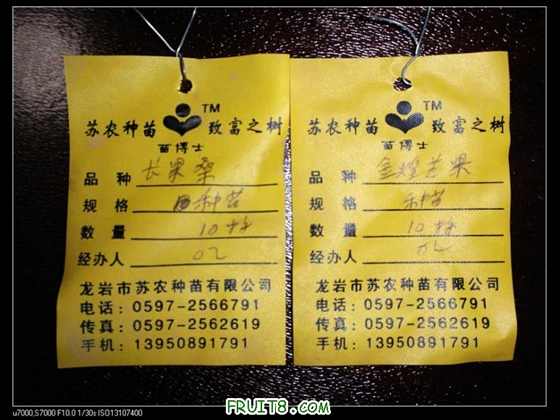 苏农种苗 TM 致富之树
苗博士
品种 长果桑
规格 种苗
数量 10株
经办人 02
龙岩市苏农种苗有限公司
电话: 0597-2566791
传真: 0597-2562619
手机: 13950891791
苏农种苗 TM 致富之树
苗博士
品种 金煌芒果
规格 种苗
数量 10株
经办人 02
龙岩市苏农种苗有限公司
电话: 0597-2566791
传真: 0597-2562619
手机: 13950891791
u7000,S7000 F10.0 1/30s ISO13107400
FRUIT8.COM